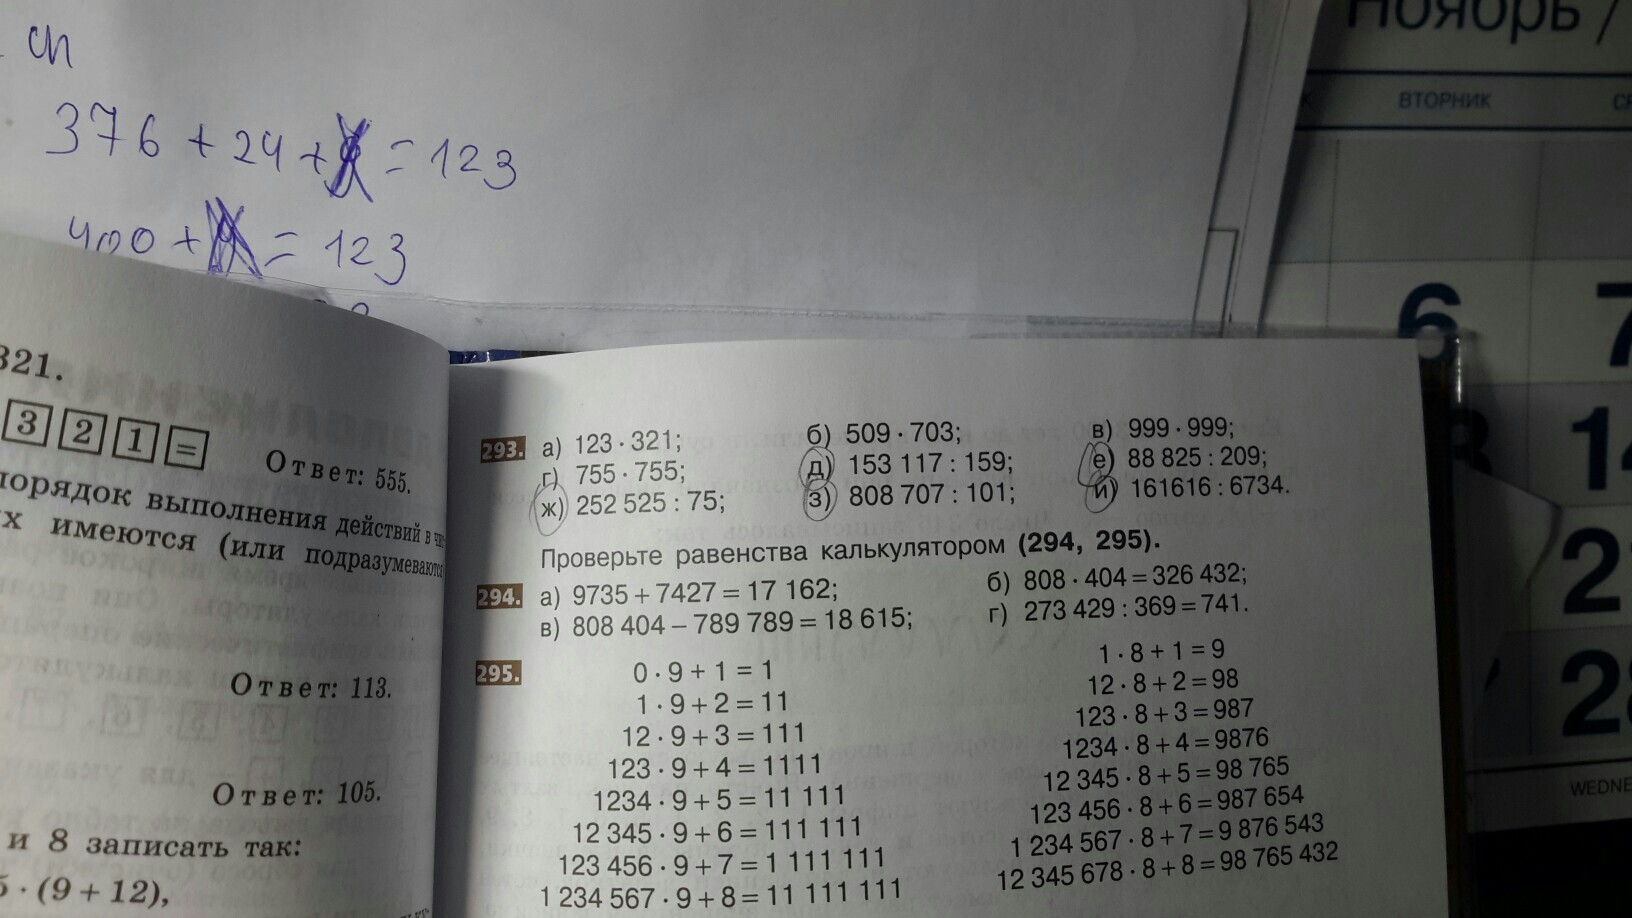 Ноябрь /
ВТОРНИК
6
7
14
21
28
WEDNE
сл
376 + 24 + = 123
400 + = 123
321.
3 2 1 =
Ответ: 555.
порядок выполнения действий в
имеются (или подразумеваются
Ответ: 113.
Ответ: 105.
и 8 записать так:
5 · (9 + 12),
293. а) 123 · 321; б) 509 · 703; в) 999 · 999;
г) 755 · 755; д) 153 117 : 159; е) 88 825 : 209;
ж) 252 525 : 75; з) 808 707 : 101; и) 161616 : 6734.
Проверьте равенства калькулятором (294, 295).
294. а) 9735 + 7427 = 17 162; б) 808 · 404 = 326 432;
в) 808 404 – 789 789 = 18 615; г) 273 429 : 369 = 741.
295. 0 · 9 + 1 = 1
1 · 9 + 2 = 11
12 · 9 + 3 = 111
123 · 9 + 4 = 1111
1234 · 9 + 5 = 11 111
12 345 · 9 + 6 = 111 111
123 456 · 9 + 7 = 1 111 111
1 234 567 · 9 + 8 = 11 111 111
1 · 8 + 1 = 9
12 · 8 + 2 = 98
123 · 8 + 3 = 987
1234 · 8 + 4 = 9876
12 345 · 8 + 5 = 98 765
123 456 · 8 + 6 = 987 654
1 234 567 · 8 + 7 = 9 876 543
12 345 678 · 8 + 8 = 98 765 432